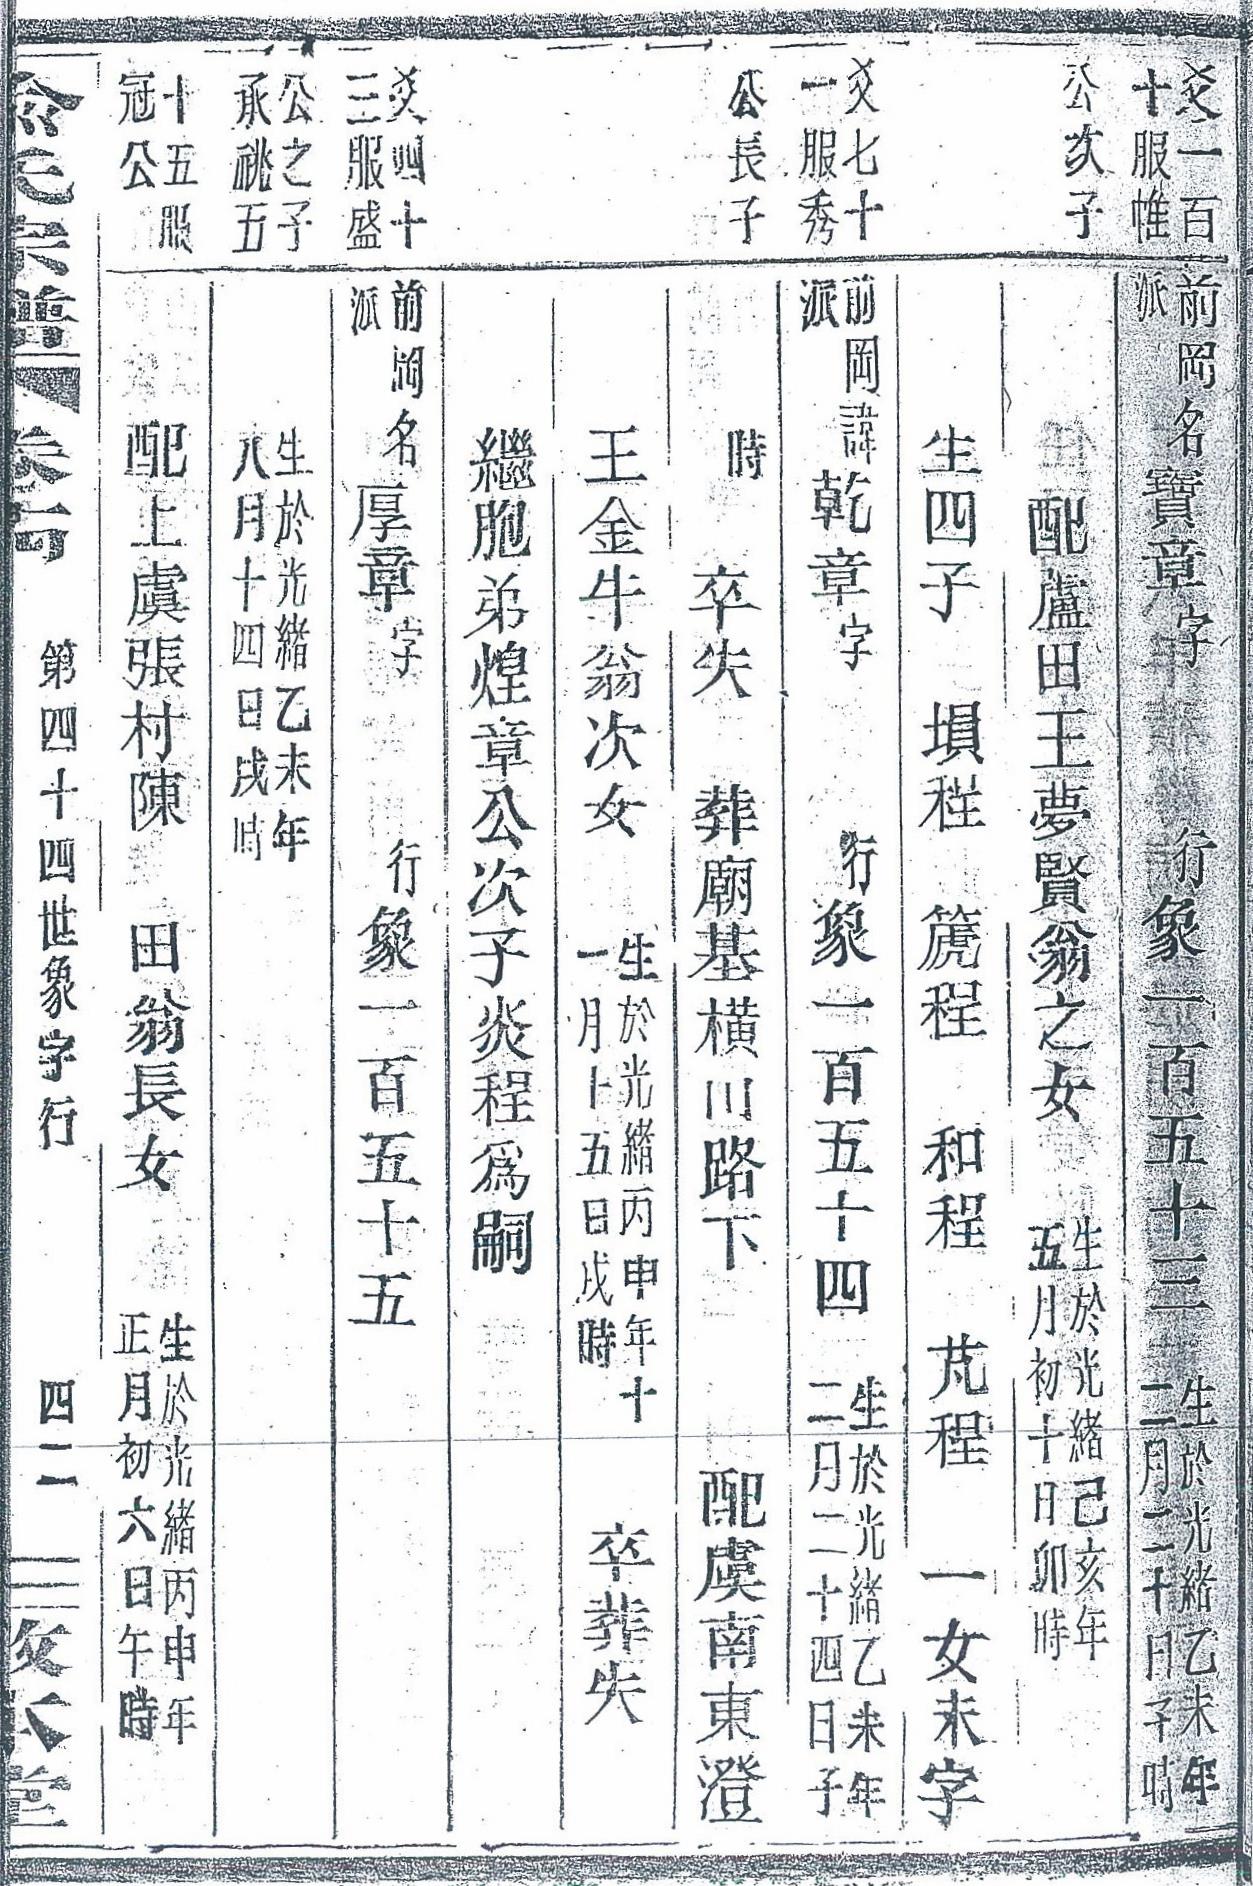 爻一百
十服帷
公次子
前岡派名寶章字 行象一百五十三 生於光緒乙未年
二月二十日子時
配盧田王夢賢翁之女 生於光緒己亥年
五月初十日卯時
生四子 塤程 篪程 和程 芃程 一女未字
爻七十
一服秀
公長子
前岡派諱乾章字 行象一百五十四 生於光緒乙未年
二月二十四日子
時 卒失 葬廟基橫川路下 配虞南東澄
王金牛翁次女 生於光緒丙申年十
一月十五日戌時 卒葬失
繼胞弟煌章公次子炎程為嗣
爻四十
三服盛
前岡派名厚章字 行象一百五十五
公之子
承祧五
生於光緒乙未年
八月十四日戌時
十五服
冠公
配上虞張村陳 田翁長女 生於光緒丙申年
正月初六日午時
俞氏宗譜 第四十四世象字行 四二 敦本堂